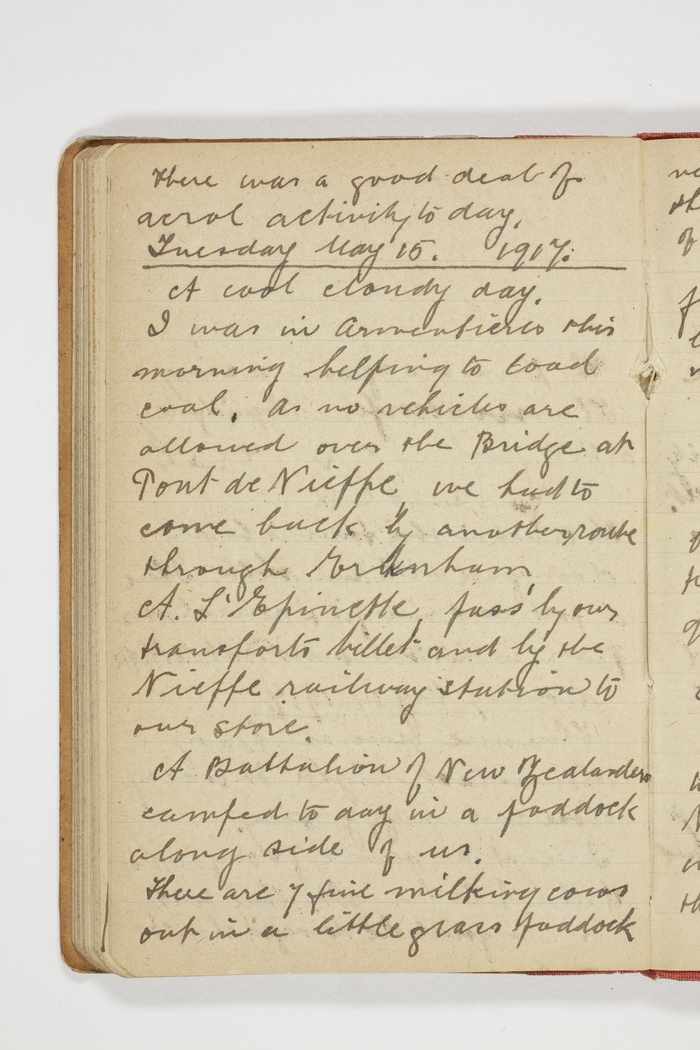 there was a good deal of
aerol activity to day.
Tuesday May 15. 1917.
A cool cloudy day.
I was in Armentieres this
morning helping to load
coal. As no vehicles are
allowed over the Bridge at
Pont de Nieppe, we had to
come back by another route
through
A. L'Epinette, pass by our
transports billet and by the
Nieppe railway station to
our store.
A Battalion of New Zealanders
camped to day in a paddock
along side of us.
There are 7 fine milking cows
out in a little grass paddock